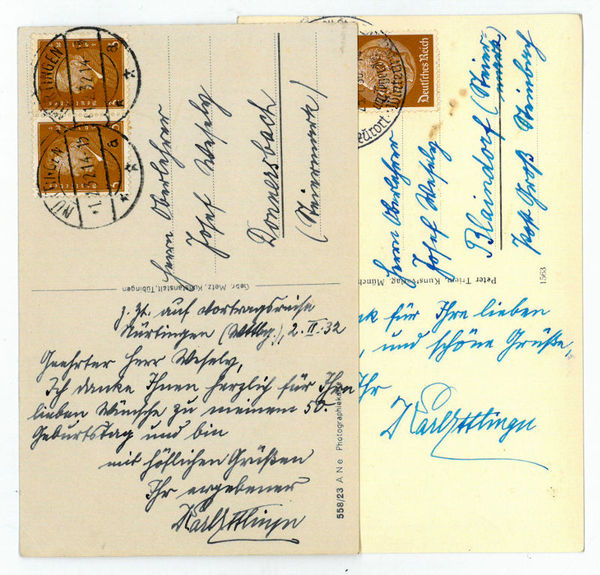 Herrn Oberlehrer
Josef Wesely
Donnersbach
(Steiermark)
NÜRTINGEN
Gebr. Metz, Kunstanstalt, Tübingen
z. Zt. auf Vortragsreise
Nürtingen (Wttbg.), 2. II. 32
Geehrter Herr Wesely,
Ich danke Ihnen herzlich für Ihre
lieben Wünsche zu meinem 50.
Geburtstag und bin
mit höflichen Grüßen
Ihr ergebener
Karl Ettlinger
558/23 A N e Photographiekarte
Deutsches Reich
Herrn Oberlehrer
Josef Wesely
Blaindorf (Steier-
mark)
Post Groß Steinbach
Peter Triem, Kunstverlag, Münch
1563
k für Ihre lieben
, und schöne Grüße,
Ihr
Karl Ettlinger